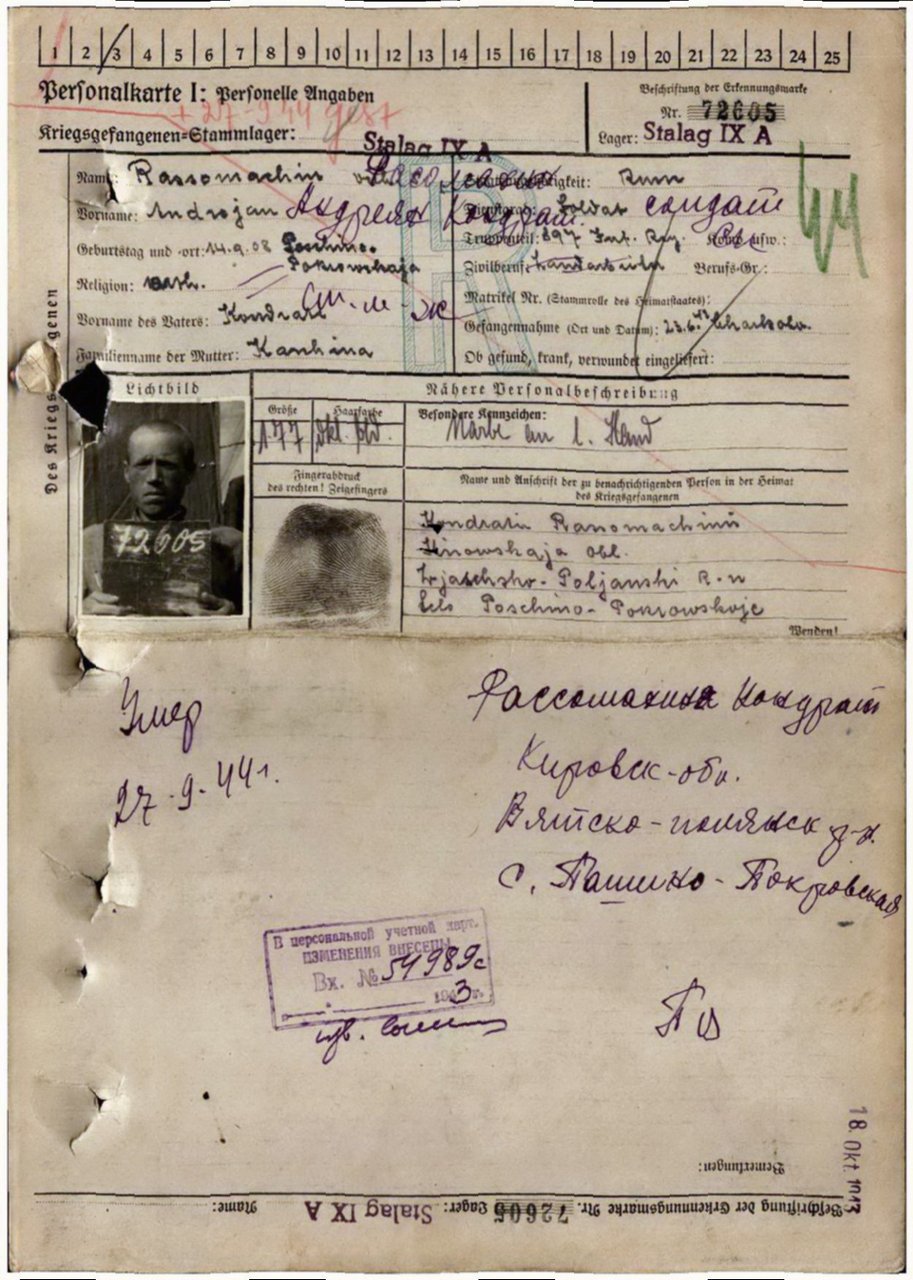 1 2 3 4 5 6 7 8 9 10 11 12 13 14 15 16 17 18 19 20 21 22 23 24 25
Personalkarte I: Personelle Angaben
+ 27-9 44 gest
Kriegsgefangenen-Stammlager: Stalag IX A
Beschriftung der Erkennungsmarke
Nr. 72605
Lager: Stalag IX A
Des Kriegsgefangenen
Name: Rassomachin
Vorname: Androjan Кондрат
Geburtstag und -ort: 14.9.08 Poschino-
Pokrowskaja
Religion: orth.
Vorname des Vaters: Kondrat
Familienname der Mutter: Kaschina
Staatsangehörigkeit: Russe
Dienstgrad: Soldat солдат
Truppenteil: 897 Inf. Reg. Komp. usw.:
Zivilberuf: Berufs-Gr.:
Matrikel Nr. (Stammrolle des Heimatstaates):
Gefangennahme (Ort und Datum): Charkow
Ob gesund, krank, verwundet eingeliefert:
Lichtbild
72605
Nähere Personalbeschreibung
Größe
177
Haarfarbe
dkl. bld.
Besondere Kennzeichen:
Narbe an l. Hand
Fingerabdruck
des rechten! Zeigefingers
Name und Anschrift der zu benachrichtigenden Person in der Heimat
des Kriegsgefangenen
Kondratin Rassomachinin
Kirowskaja Obl.
Wjatschsko-Poljanski R-n
Selo Poschino-Pokrowskoje
Wenden!
Умер
27-9-44 г.
Рассомахина Кондрат
Кировск-обл.
Вятско-полянск р-н.
с. Пашино-Покровская
В персональной учетной карт.
ИЗМЕНЕНИЯ ВНЕСЕНЫ
Вх. № 54989с
18. Okt. 1943
Bemerkungen:
Beschriftung der Erkennungsmarke Nr. 72605 Lager: Stalag IX A Name: